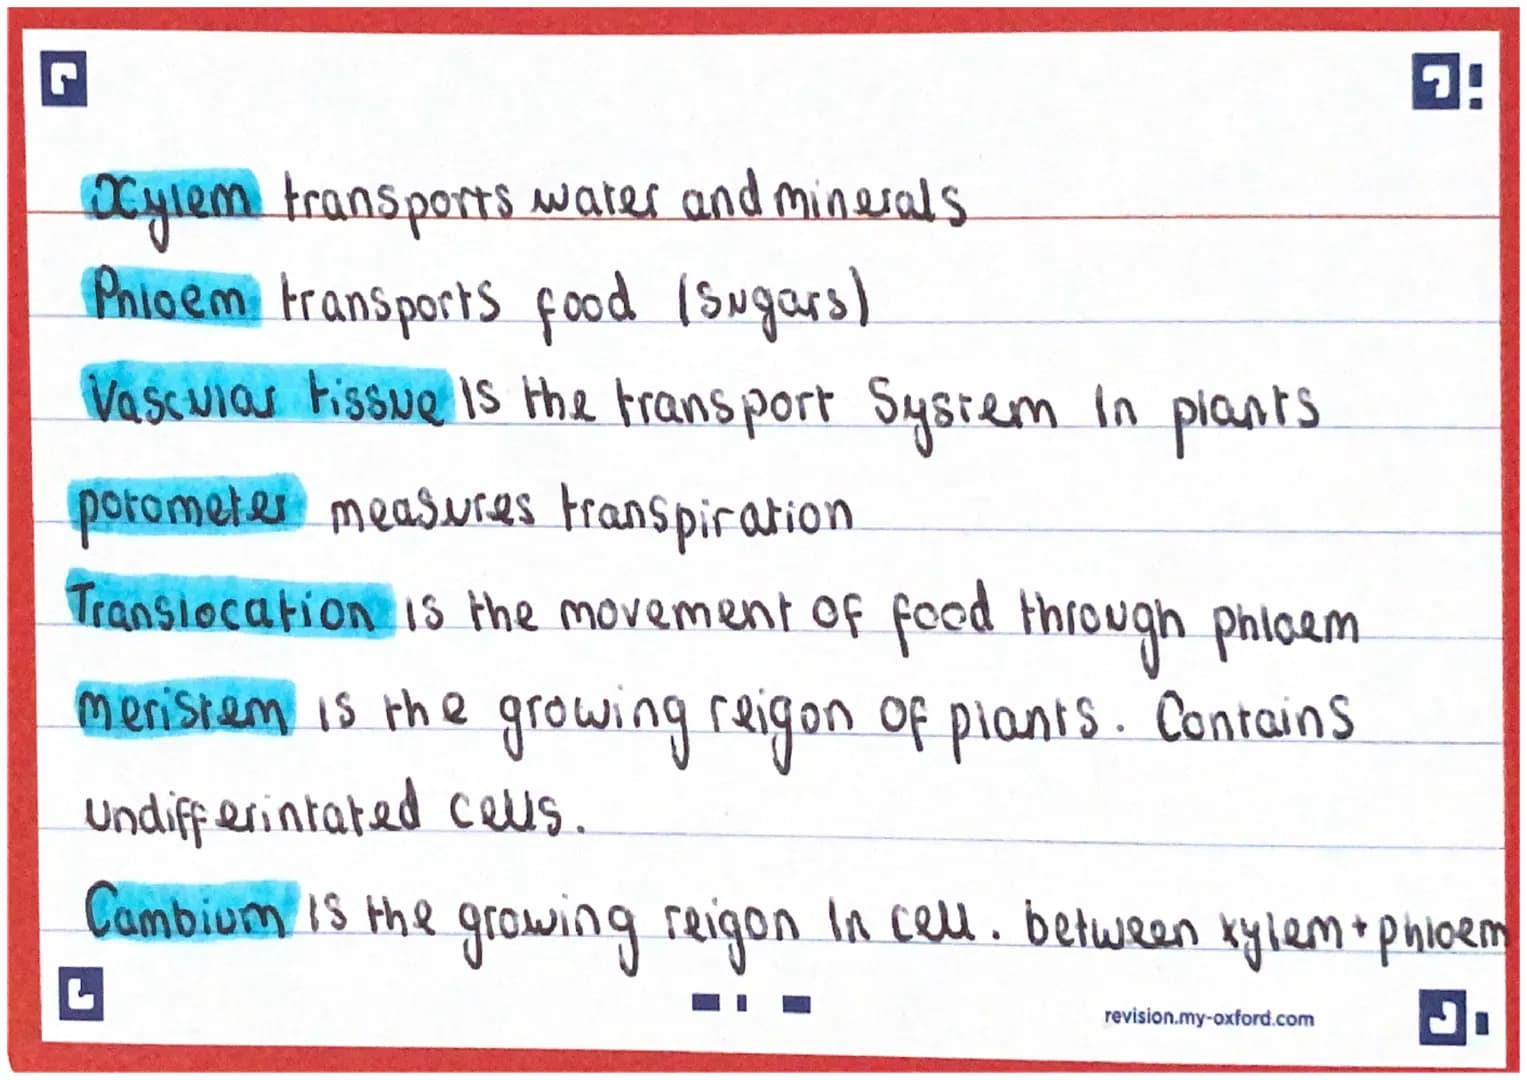 Xylem transports water and minerals
Phloem transports food (sugars)
Vascular tissue is the transport system in plants
potometer measures transpiration
Translocation is the movement of food through phloem
meristem is the growing reigon of plants. Contains
undifferintated cells.
Cambium is the growing reigon in cell. between xylem + phloem
revision.my-oxford.com